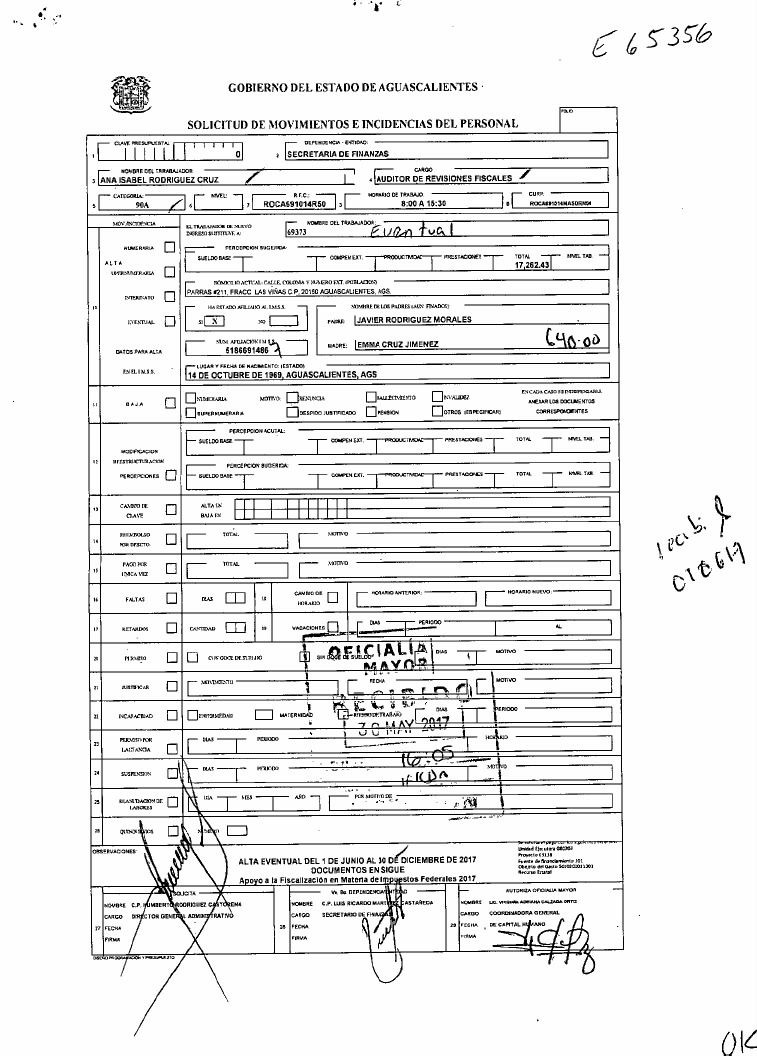 E 65356
GOBIERNO DEL ESTADO DE AGUASCALIENTES
SOLICITUD DE MOVIMIENTOS E INCIDENCIAS DEL PERSONAL
FOLIO
CLAVE PRESUPUESTAL: DEPENDENCIA - ENTIDAD:
1 0 2 SECRETARIA DE FINANZAS
NOMBRE DEL TRABAJADOR CARGO
3 ANA ISABEL RODRIGUEZ CRUZ 4 AUDITOR DE REVISIONES FISCALES
CATEGORIA: NIVEL: R.F.C.: HORARIO DE TRABAJO: CURP:
5 90A 6 7 ROCA691014R50 8:00 A 15:30
MOV./INCIDENCIA EL TRABAJADOR DE NUEVO INGRESO SUSTITUYE A: NOMBRE DEL TRABAJADOR:
69373 Eventual
NUMERARIA PERCEPCION SUGERIDA:
ALTA SUELDO BASE COMPEN EXT. PRODUCTIVIDAD PRESTACIONES TOTAL NIVEL TAB.
SUPERNUMERARIA 17,262.43
DOMICILIO ACTUAL: CALLE, COLONIA Y NUMERO EXT. (POBLACION)
INTERINATO PARRAS #211, FRACC. LAS VIÑAS C.P. 20160 AGUASCALIENTES, AGS.
10 HA ESTADO AFILIADO AL I.M.S.S. NOMBRE DE LOS PADRES (AUN FINADOS):
EVENTUAL SI X NO PADRE: JAVIER RODRIGUEZ MORALES
NUM. AFILIACION I.M.S.S. 640.00
DATOS PARA ALTA 5186691486 MADRE: EMMA CRUZ JIMENEZ
EN EL I.M.S.S. LUGAR Y FECHA DE NACIMIENTO: (ESTADO)
14 DE OCTUBRE DE 1969, AGUASCALIENTES, AGS
11 BAJA NUMERARIA MOTIVO: RENUNCIA FALLECIMIENTO INVALIDEZ EN CADA CASO ES INDISPENSABLE
SUPERNUMERARIA DESPIDO JUSTIFICADO PENSION OTROS (ESPECIFICAR) ANEXAR LOS DOCUMENTOS CORRESPONDIENTES
PERCEPCION ACUTAL:
MODIFICACION SUELDO BASE COMPEN EXT. PRODUCTIVIDAD PRESTACIONES TOTAL NIVEL TAB.
12 REESTRUCTURACION PERCEPCION SUGERIDA:
PERCEPCIONES SUELDO BASE COMPEN EXT. PRODUCTIVIDAD PRESTACIONES TOTAL NIVEL TAB
13 CAMBIO DE CLAVE ALTA EN
BAJA EN
14 REEMBOLSO POR DESCTO. TOTAL MOTIVO
15 PAGO POR UNICA VEZ TOTAL MOTIVO
010617
16 FALTAS DIAS 18 CAMBIO DE HORARIO HORARIO ANTERIOR: HORARIO NUEVO:
17 RETARDOS CANTIDAD 19 VACACIONES DIAS PERIODO AL
20 PERMISO CON GOCE DE SUELDO SIN GOCE DE SUELDO DIAS MOTIVO
OFICIALIA MAYOR
21 JUSTIFICAR MOVIMIENTO FECHA MOTIVO
RECIBIDO
22 INCAPACIDAD ENFERMEDAD MATERNIDAD RIESGO DE TRABAJO DIAS PERIODO
30 MAY 2017
23 PERMISO POR LACTANCIA DIAS PERIODO HORARIO
16:05
24 SUSPENSION DIAS PERIODO MOTIVO
25 REANUDACION DE LABORES DIA MES AÑO POR MOTIVO DE
26 QUINQUENIOS NUMERO
OBSERVACIONES:
Unidad Ejecutora
Proyecto
Fuente de financiamiento 101
Objetivo del Gasto
Recurso Estatal
ALTA EVENTUAL DEL 1 DE JUNIO AL 30 DE DICIEMBRE DE 2017
DOCUMENTOS EN SIGUE
Apoyo a la Fiscalización en Materia de Impuestos Federales 2017
SOLICITA Vo. Bo. DEPENDENCIA/ENTIDAD AUTORIZA OFICIALIA MAYOR
NOMBRE C.P. HUMBERTO RODRIGUEZ CASTORENA NOMBRE C.P. LUIS RICARDO MARTINEZ CASTAÑEDA NOMBRE LIC. VIVIANA ADRIANA CALZADA ORTIZ
CARGO DIRECTOR GENERAL ADMINISTRATIVO CARGO SECRETARIO DE FINANZAS CARGO COORDINADORA GENERAL
27 FECHA 28 FECHA 29 FECHA DE CAPITAL HUMANO
FIRMA FIRMA FIRMA
OK